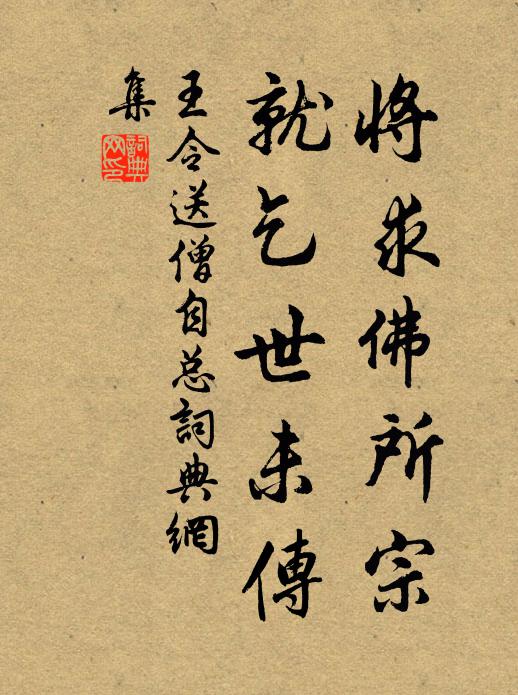 將求佛所宗
就乞世未傳
王令送僧自总詞典網
集
詞典网印